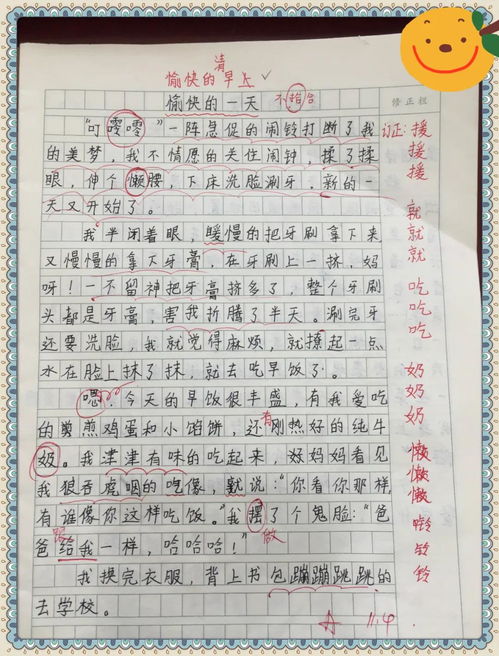 清
愉快的早上
愉快的一天 不抬合
修正栏
“叮嘹嘹”一阵急促的闹铃打断了我 订正:援
的美梦,我不情愿的关住闹钟,揉了揉 援
眼,伸个懒腰,下床洗脸涮牙。新的一 援
天又开始了。 就
我半闭着眼,暖慢的把牙刷拿下来 就
又慢慢的拿下牙膏,在牙刷上一挤,妈 就
呀!一不留神把牙膏挤多了,整个牙刷 吃
头都是牙膏,害我折腾了半天。涮完牙 吃
还要洗脸,我就觉得麻烦,就撩起一点 吃
水在脸上抹了抹,就去吃早饭了。 奶
嗯!今天的早饭很丰盛,有我爱吃 奶
的煎鸡蛋和小馅餅,还有刚热好的纯牛 奶
奶。我津津有味的吃起来,好妈妈看见 懒
我狼吞虎咽的吃像,就说:“你看你那样, 懒
有谁像你这样吃饭。”我摆了个鬼脸:“爸 懒
做
爸给我一样,哈哈哈!” 铃
跟
我换完衣服,背上书包蹦蹦跳跳的 铃
去学校。 铃
11.4